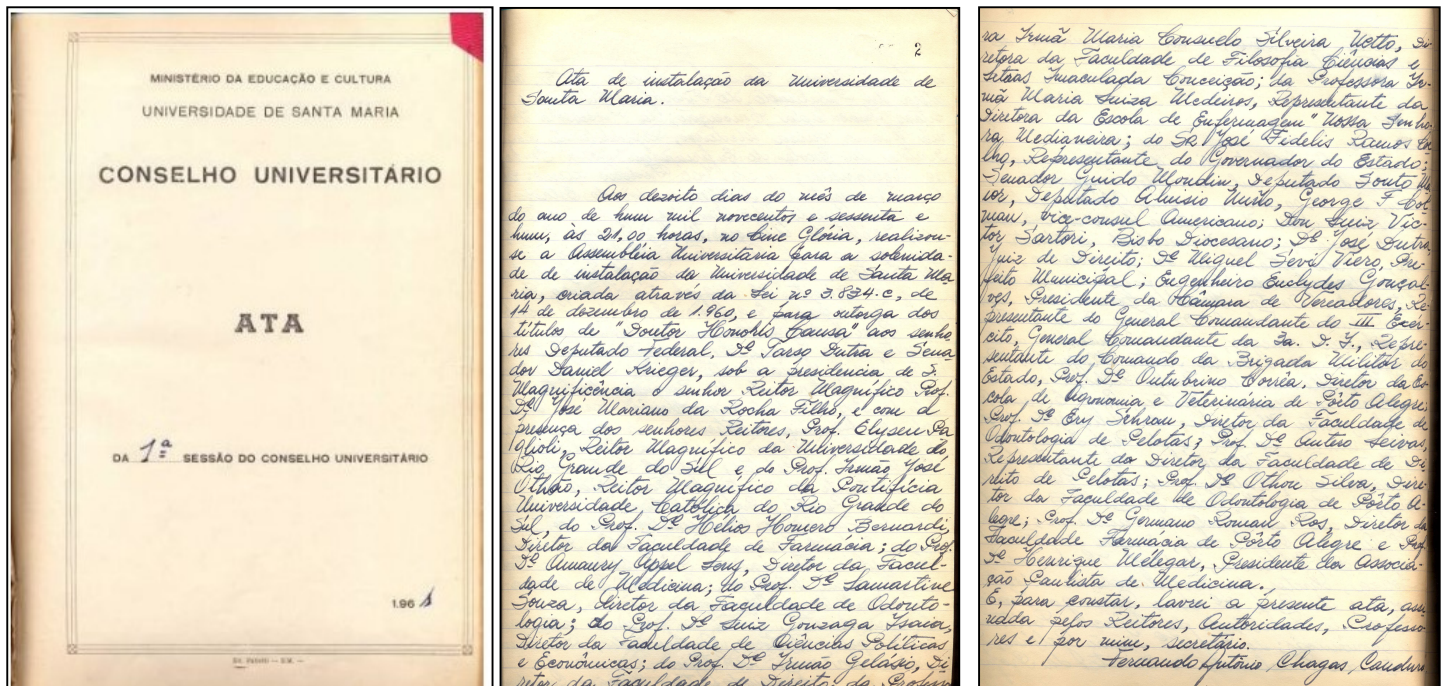 MINISTÉRIO DA EDUCAÇÃO E CULTURA
UNIVERSIDADE DE SANTA MARIA
CONSELHO UNIVERSITÁRIO
ATA
DA 1ª SESSÃO DO CONSELHO UNIVERSITÁRIO
1.961
2
Ata de instalação da Universidade de
Santa Maria.
Aos dezoito dias do mês de março
do ano de hum mil novecentos e sessenta e
hum, às 21,00 horas, no Cine Glória, realizou-
se a Assembléia Universitária para a solenida-
de de instalação da Universidade de Santa Ma
ria, criada através da Lei nº 3.834-c, de
14 de dezembro de 1.960, e para outorga dos
títulos de "Doutor Honoris Causa" aos senho
res Deputado Federal, Dº Tarso Dutra e Sena
dor Daniel Krieger, sob a presidencia de S.
Magnificência o senhor Reitor Magnífico Prof.
Dº José Mariano da Rocha Filho, e com a
presença dos senhores Reitores, Prof. Elyseu Pa
glioli, Reitor Magnífico da Universidade do
Rio Grande do Sul e do Prof. Irmão José
Othão, Reitor Magnífico da Pontifícia
Universidade Católica do Rio Grande do
Sul, do Prof. Dº Hélios Homero Bernardi,
Diretor da Faculdade de Farmácia; do Prof.
Dº Amaury Appel Lenz, Diretor da Facul-
dade de Medicina; do Prof. Dº Lamartine
Souza, Diretor da Faculdade de Odonto-
logia; do Prof. Dº Luiz Gonzaga Isaia,
Diretor da Faculdade de Ciências Políticas
e Econômicas; do Prof. Dº Irmão Gelásio, Di
retor da Faculdade de Direito; da Professo
ra Irmã Maria Consuelo Silveira Netto, Di
retora da Faculdade de Filosofia Ciências e
Letras Imaculada Conceição; da Professora Ir-
mã Maria Luiza Medeiros, Representante da
Diretora da Escola de Enfermagem "Nossa Senho
ra Medianeira; do Sr. José Fidelis Ramos Co
lho, Representante do Governador do Estado;
Senador Guido Mondin, Deputado Souto Ma
ior, Deputado Aluisio, George F.
man, vice-consul Americano; Don Luiz Vic-
tor Sartori, Bisbo Diocesano; Dº José Dutra,
Juiz de Direito; Dº Miguel Sevi Viero, Pre-
feito Municipal; Engenheiro Euclydes Gonçal-
ves, Presidente da Câmara de Vereadores, Re
presentante do General Comandante do III Exér-
cito, General Comandante da 3a. D. I., Repre-
sentante do Comando da Brigada Militar do
Estado, Prof. Dº Outubrino Corrêa, Diretor da Es
cola de Agronomia e Veterinária de Pôrto Alegre;
Prof. Dº Ery Schram, Diretor da Faculdade de
Odontologia de Pelotas; Prof. Dº Antero Leivas,
Representante do Diretor da Faculdade de Di
reito de Pelotas; Prof. Dº Othon Silva, Dire-
tor da Faculdade de Odontologia de Pôrto A-
legre; Prof. Dº Germano Roman Ros, Diretor da
Faculdade Farmácia de Pôrto Alegre e Prof.
Dº Henrique Mélegar, Presidente da Associa-
ção Paulista de Medicina.
E, para constar, lavrei a presente ata, assi
nada pelos Reitores, Autoridades, Professo
res e por mim, secretário.
Fernando Antônio, Chagas, Canduro